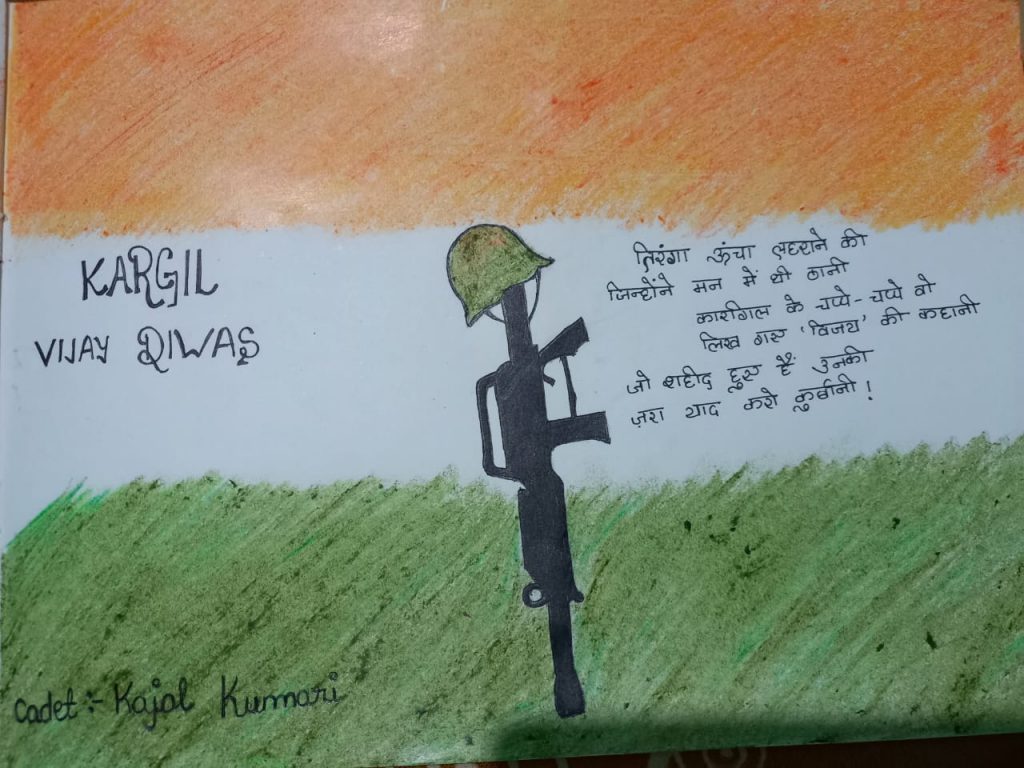 KARGIL
VIJAY DIWAS
तिरंगा ऊंचा लहराने की
जिन्होंने मन में थी ठानी
कारगिल के चप्पे-चप्पे वो
लिख गए 'विजय' की कहानी
जो शहीद हुए हैं उनकी
ज़रा याद करो कुर्बानी!
Cadet:- Kajal Kumari